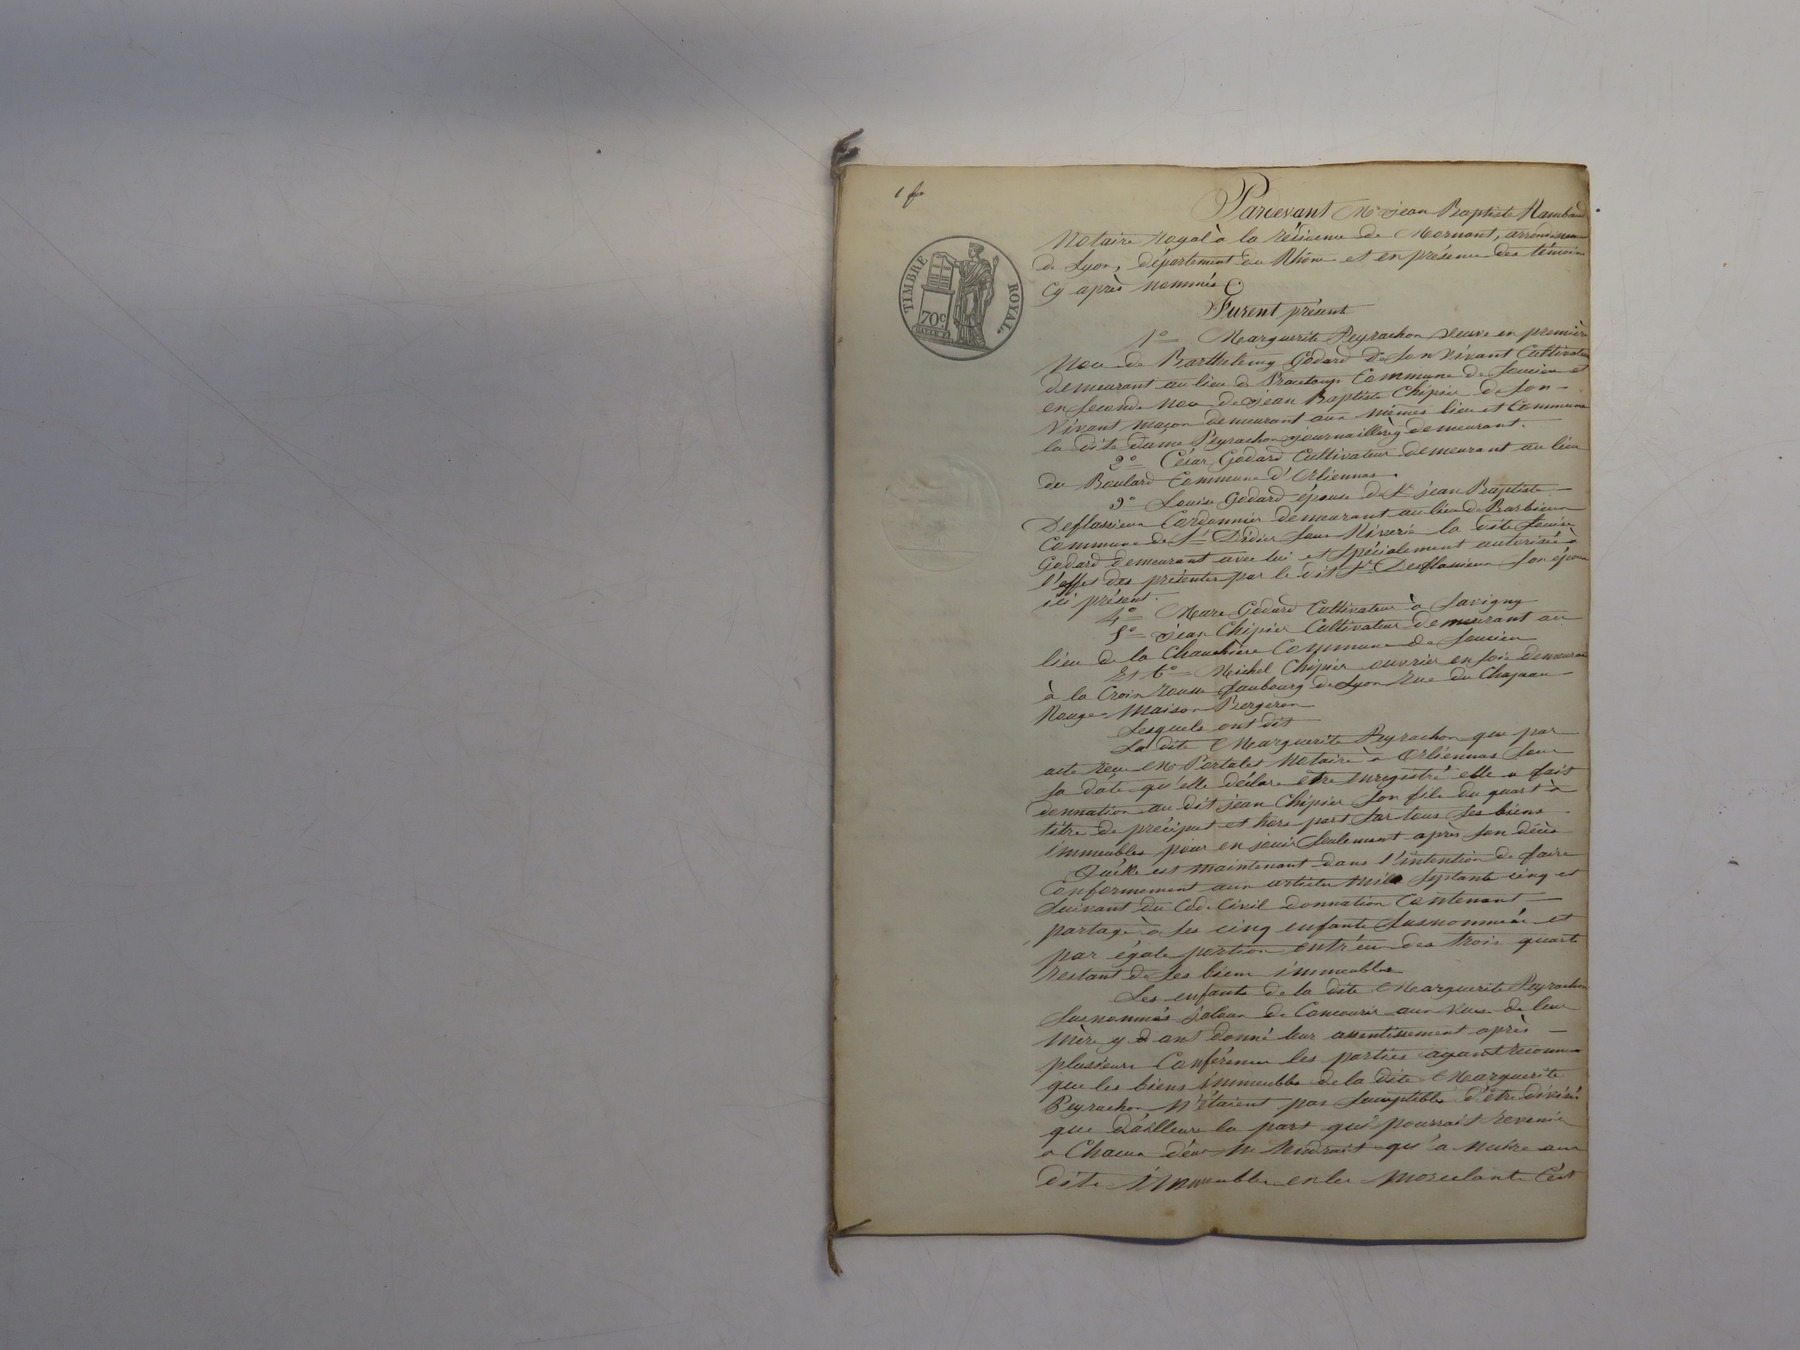 1 f
Pardevant Me Jean Baptiste Rambaud
Notaire royal à la résidence de Mornant, arrondissem
de Lyon, département du Rhône et en présence des témoins
cy après nommés
TIMBRE ROYAL
70c
Furent présent
1o Marguerite Peyrachon veuve en première
Noce de Barthelemy Godard de son vivant Cultivateur
demeurant au lieu de Commune de Soucieu et
en seconde Noce de jean Baptiste Chipier de son
vivant maçon demeurant aux mêmes lieu et Commune
la dite dame Peyrachon journaillère y demeurant.
2o César Godard Cultivateur demeurant au lieu
du Boulard Commune d'Orlienas.
3o Louise Godard épouse de Sr jean Baptiste
Deflassieux Cordonnier demeurant au lieu de Barbieux
Commune de St Didier sous Riverie la dite Louise
Godard demeurant avec lui et spécialement autorisée à
l'effet des présentes par le dit Sr Deflassieux son époux
ici présent.
4o Marc Godard Cultivateur à Savigny
5o jean Chipier Cultivateur demeurant au
lieu de la Chauchère Commune de Soucieu
Et 6o Michel Chipier ouvrier en soie demeurant
à la Croix rousse faubourg de Lyon rue du Chapeau
Rouge Maison Bergeron
Lesquels ont dit
La dite Marguerite Peyrachon que par
acte reçu Me Portalet Notaire à Orlienas sous
sa date qu'elle déclare être enregistré elle a fait
donnation au dit jean Chipier son fils du quart à
titre de préciput et hors part sur tous ses biens
immeubles pour en jouir seulement après son décès
Qu'elle est maintenant dans l'intention de faire
Conformement aux articles mil septante cinq et
suivant du Code Civil donnation Contenant
partage à ses cinq enfants susnommés et
par égale portion entr'eux des trois quarts
restant de ses biens immeubles
Les enfants de la dite Marguerite Peyrachon
susnommés jaloux de Concourir aux vues de leur
Mère y ont donné leur assentissement après
plusieurs Conférences les parties ayant reconnu
que les biens immeubles de la dite Marguerite
Peyrachon n'étaient pas susceptibles d'être divisés
que d'ailleurs la part qui pourrait revenir
à Chacun d'eux ne tiendrait qu'a nuire aux
dits immeubles en les morcelants C'est